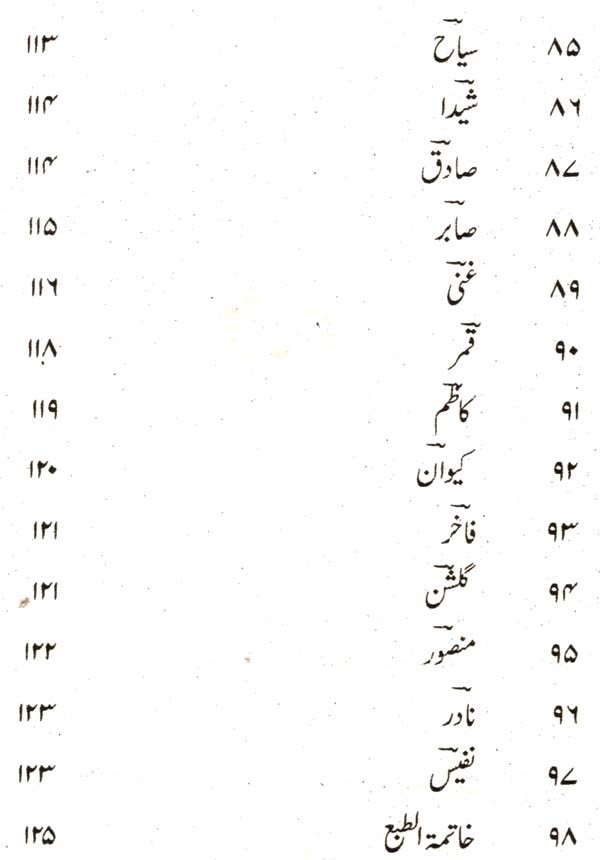 ۸۵ سیاؔح ۱۱۳
۸۶ شیدؔا ۱۱۴
۸۷ صادقؔ ۱۱۴
۸۸ صابرؔ ۱۱۵
۸۹ غنیؔ ۱۱۶
۹۰ قمرؔ ۱۱۸
۹۱ کاظمؔ ۱۱۹
۹۲ کیوانؔ ۱۲۰
۹۳ فاخرؔ ۱۲۱
۹۴ گلشنؔ ۱۲۱
۹۵ منصورؔ ۱۲۲
۹۶ نادرؔ ۱۲۳
۹۷ نفیسؔ ۱۲۳
۹۸ خاتمۃ الطبع ۱۲۵